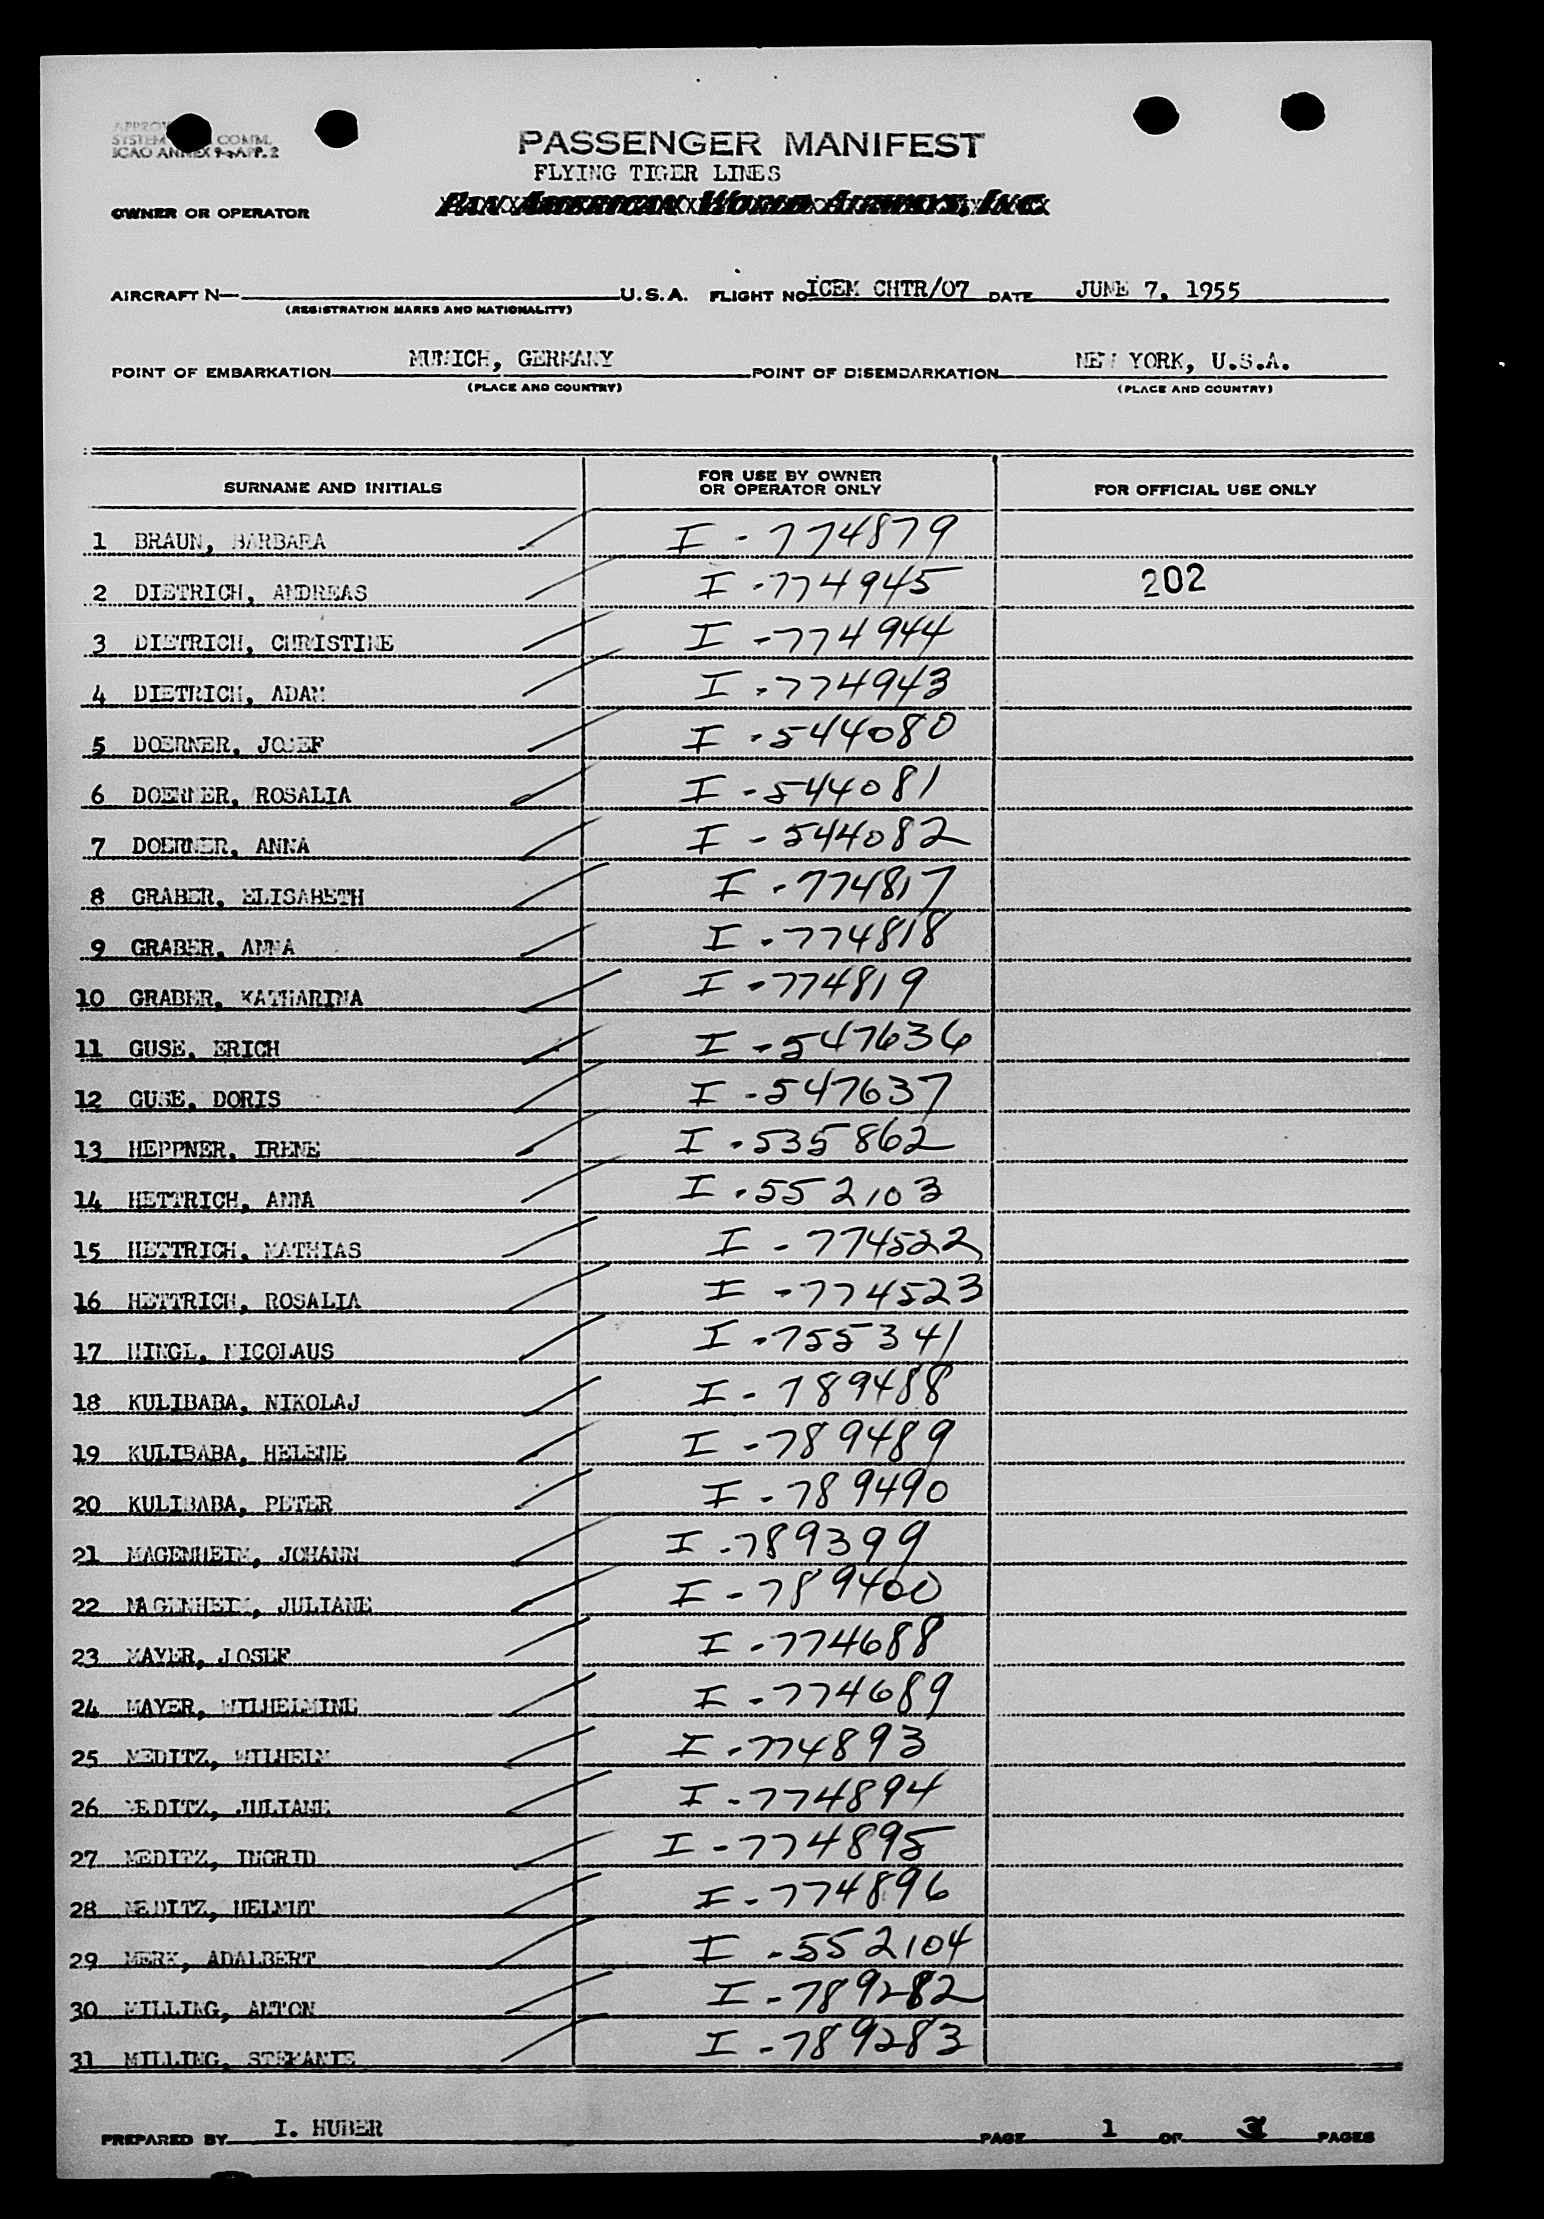 APPROV
SYSTEM COMM.
ICAO ANNEX 9-APP. 2
PASSENGER MANIFEST
FLYING TIGER LINES
PAN AMERICAN WORLD AIRWAYS, INC.
OWNER OR OPERATOR
AIRCRAFT N— U.S.A. FLIGHT NO ICEM CHTR/07 DATE JUNE 7, 1955
(REGISTRATION MARKS AND NATIONALITY)
POINT OF EMBARKATION MUNICH, GERMANY POINT OF DISEMBARKATION NEW YORK, U.S.A.
(PLACE AND COUNTRY) (PLACE AND COUNTRY)
SURNAME AND INITIALS FOR USE BY OWNER OR OPERATOR ONLY FOR OFFICIAL USE ONLY
1 BRAUN, BARBARA I - 774879
2 DIETRICH, ANDREAS I - 774945 202
3 DIETRICH, CHRISTINE I - 774944
4 DIETRICH, ADAM I - 774943
5 DOERNER, JOSEF I - 544080
6 DOERNER, ROSALIA I - 544081
7 DOERNER, ANNA I - 544082
8 GRABER, ELISABETH I - 774817
9 GRABER, ANNA I - 774818
10 GRABER, KATHARINA I - 774819
11 GUSE, ERICH I - 547636
12 GUSE, DORIS I - 547637
13 HEPPNER, IRENE I - 535862
14 HETTRICH, ANNA I - 552103
15 HETTRICH, MATHIAS I - 774522
16 HETTRICH, ROSALIA I - 774523
17 HINGL, NICOLAUS I - 755341
18 KULIBABA, NIKOLAJ I - 789488
19 KULIBABA, HELENE I - 789489
20 KULIBABA, PETER I - 789490
21 MAGENHEIM, JOHANN I - 789399
22 MAGENHEIM, JULIANE I - 789400
23 MAYER, JOSEF I - 774688
24 MAYER, WILHELMINE I - 774689
25 MEDITZ, WILHELM I - 774893
26 MEDITZ, JULIANE I - 774894
27 MEDITZ, INGRID I - 774895
28 MEDITZ, HELMUT I - 774896
29 MERK, ADALBERT I - 552104
30 MILLING, ANTON I - 789282
31 MILLING, STEFANIE I - 789283
PREPARED BY I. HUBER PAGE 1 OF 3 PAGES